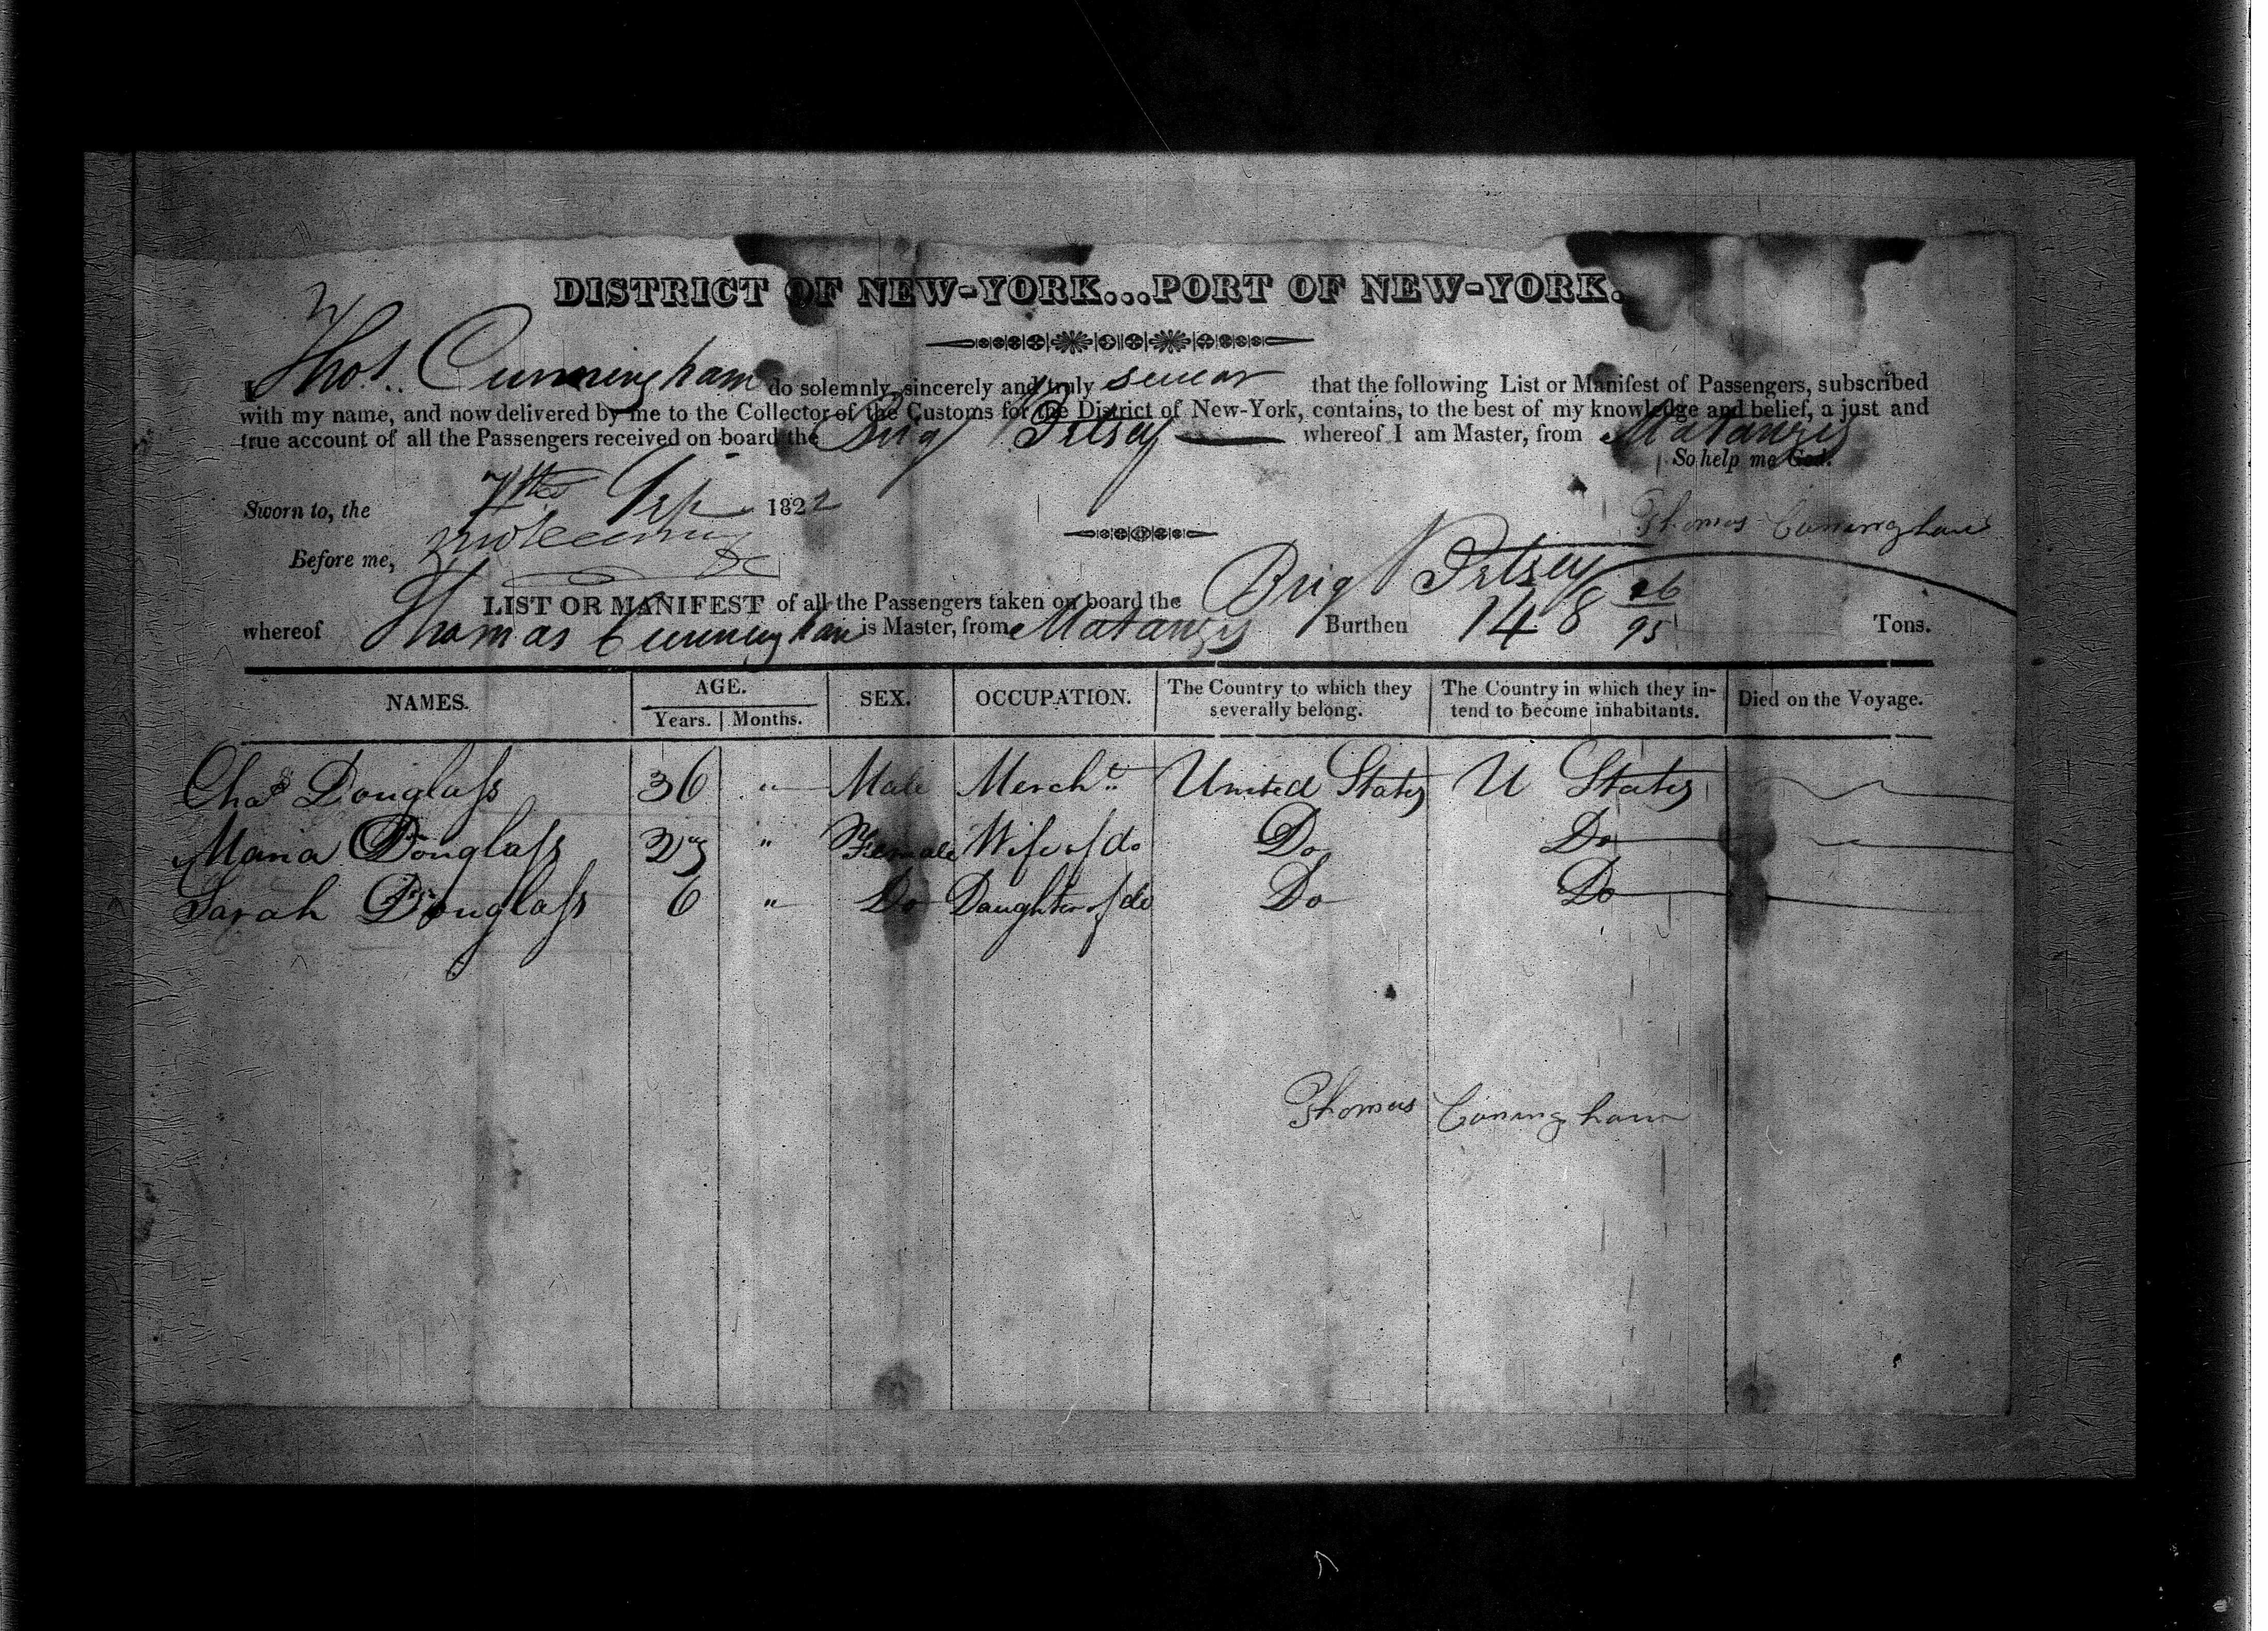 DISTRICT OF NEW-YORK...PORT OF NEW-YORK.
I Thos. Cunningham do solemnly, sincerely and truly swear that the following List or Manifest of Passengers, subscribed
with my name, and now delivered by me to the Collector of the Customs for the District of New-York, contains, to the best of my knowledge and belief, a just and
true account of all the Passengers received on board the Brig Betsey whereof I am Master, from Matanzis
So help me God.
Sworn to, the 7th Sep 1822
Thomas Cuningham
Before me,
LIST OR MANIFEST of all the Passengers taken on board the Brig Betsey
whereof Thomas Cunningham is Master, from Matanzis Burthen 148 26/95 Tons.
NAMES. AGE. SEX. OCCUPATION. The Country to which they severally belong. The Country in which they intend to become inhabitants. Died on the Voyage.
Years. Months.
Chas Douglass 36 " Male Mercht. United States U States
Maria Douglass " Female Wife of do Do Do
Sarah Douglass 6 " Do Daughter of do Do Do
Thomas Cuningham